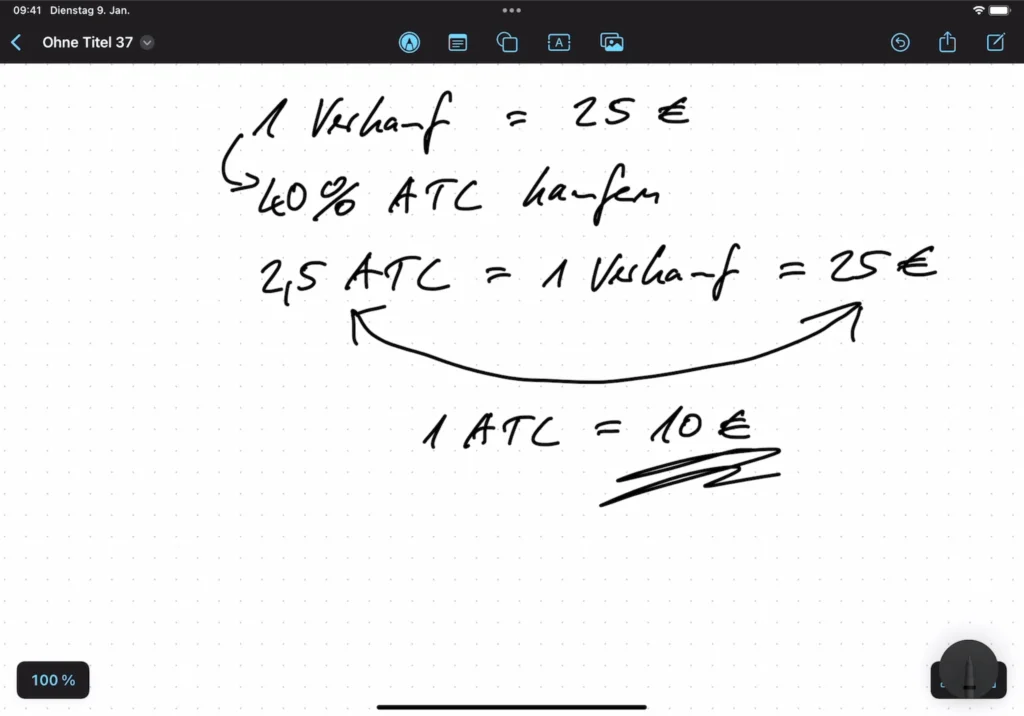 09:41 Dienstag 9. Jan.
Ohne Titel 37
1 Verkauf = 25 €
40% ATC kaufen
2,5 ATC = 1 Verkauf = 25 €
1 ATC = 10 €
100 %